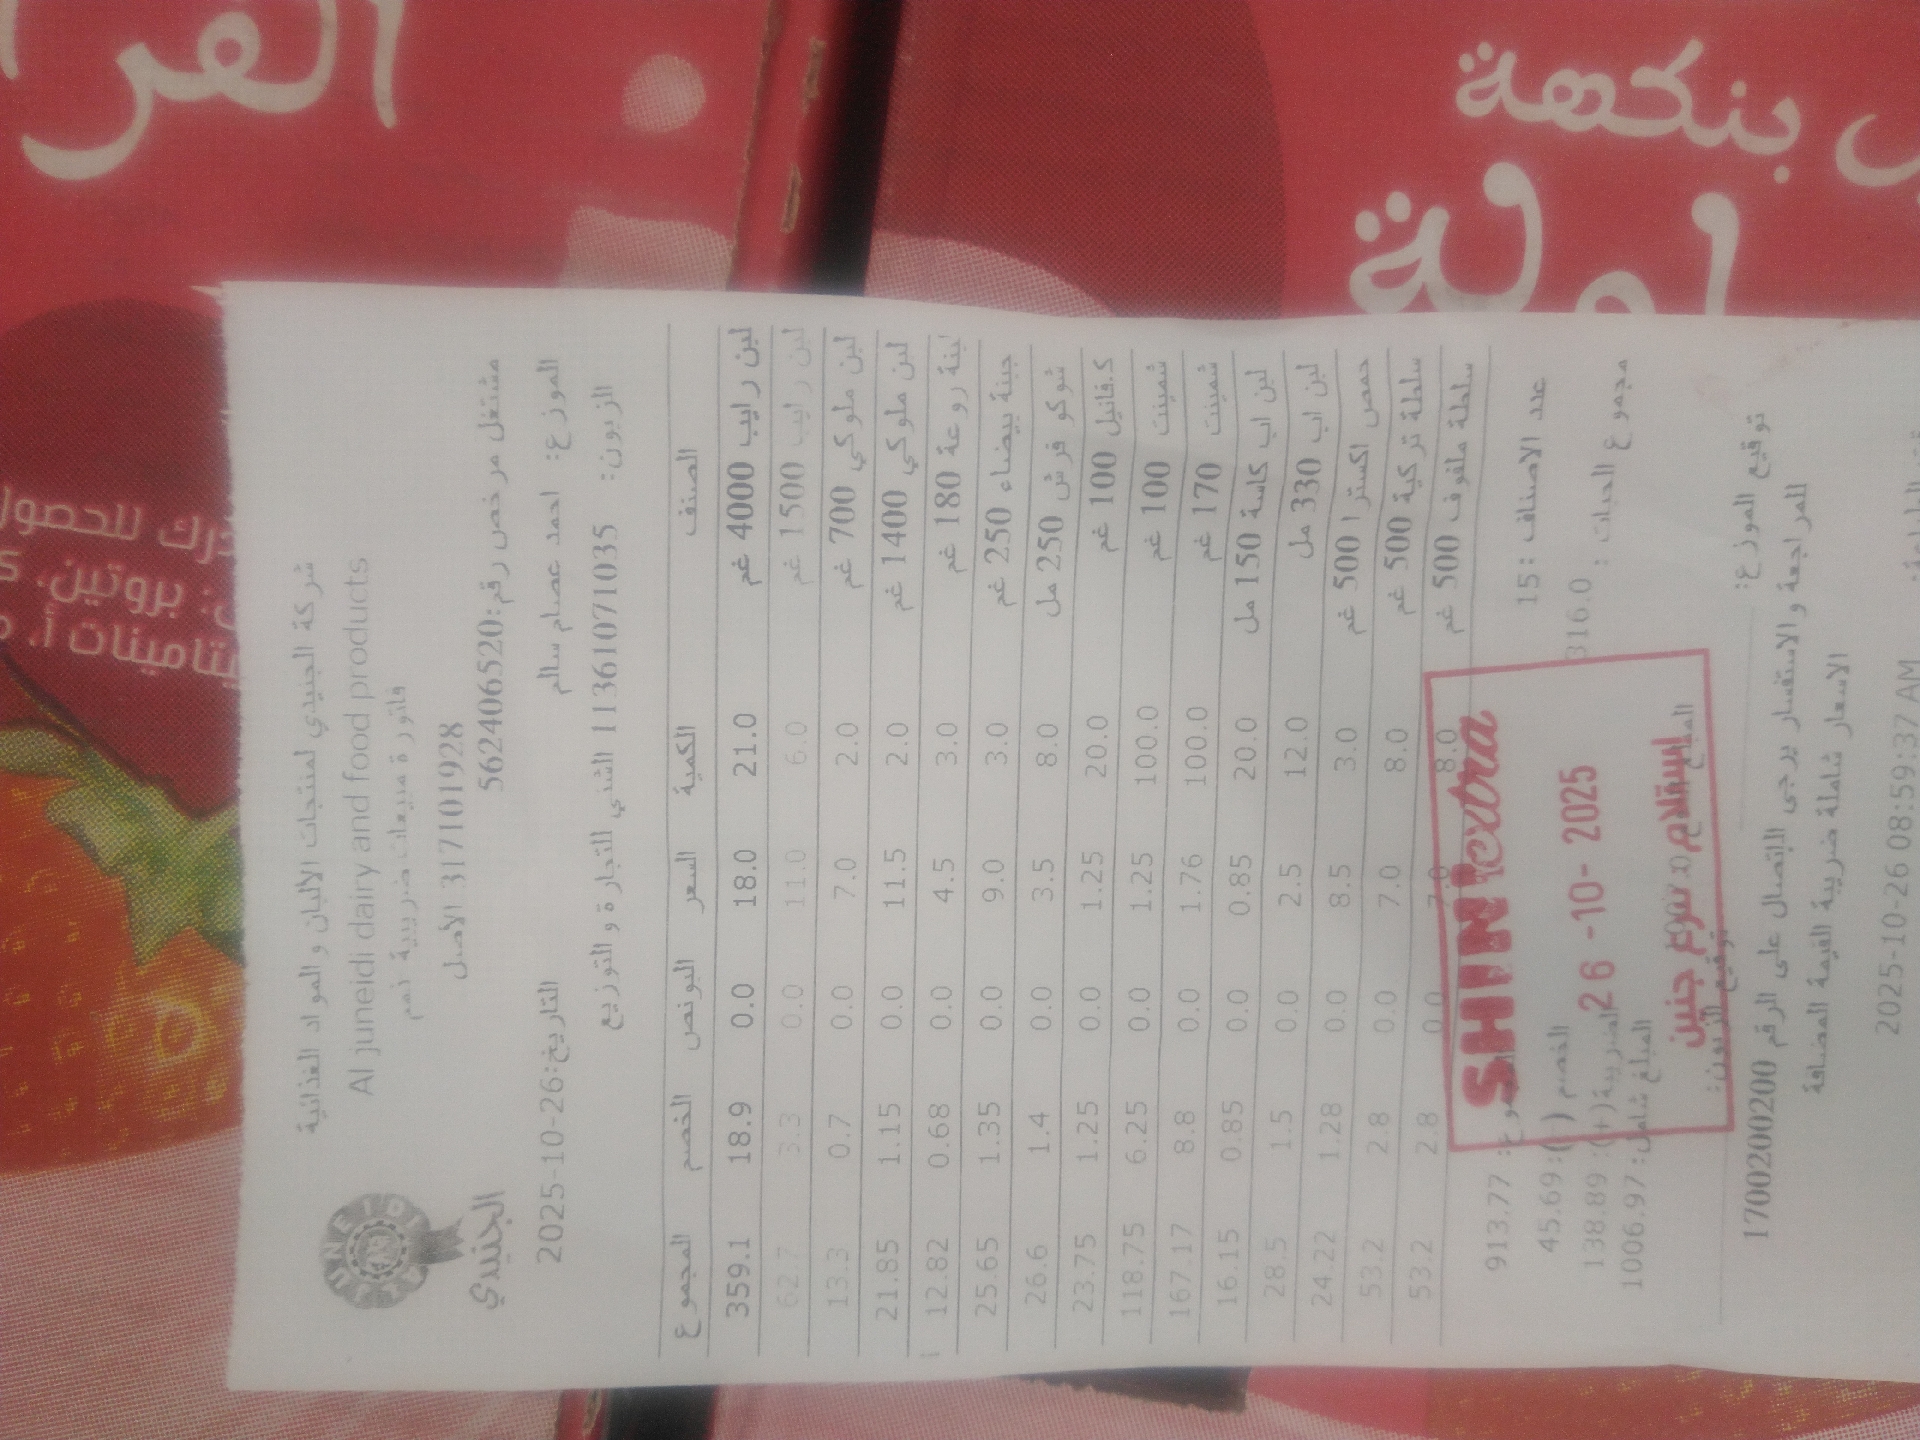 شركة الجنيدي لمنتجات الالبان والمواد الغذائية
Al juneidi dairy and food products
فاتورة مبيعات ضريبية ذمم
317101928 الاصل
مشتغل مرخص رقم:562406520
JUNEIDI
الجنيدي
الموزع: احمد عصام سالم التاريخ:2025-10-26
الزبون: 11361071035 الشني للتجارة والتوزيع
الصنف الكمية السعر البونص الخصم المجموع
لبن رايب 4000 غم 21.0 18.0 0.0 18.9 359.1
لبن رايب 1500 غم 6.0 11.0 0.0 3.3 62.7
لبن ملوكي 700 غم 2.0 7.0 0.0 0.7 13.3
لبن ملوكي 1400 غم 2.0 11.5 0.0 1.15 21.85
لبنة روعة 180 غم 3.0 4.5 0.0 0.68 12.82
جبنة بيضاء 250 غم 3.0 9.0 0.0 1.35 25.65
شوكو فرش 250 مل 8.0 3.5 0.0 1.4 26.6
ك.فانيل 100 غم 20.0 1.25 0.0 1.25 23.75
شمينت 100 غم 100.0 1.25 0.0 6.25 118.75
شمينت 170 غم 100.0 1.76 0.0 8.8 167.17
لبن اب كاسة 150 مل 20.0 0.85 0.0 0.85 16.15
لبن اب 330 مل 12.0 2.5 0.0 1.5 28.5
حمص اكسترا 500 غم 3.0 8.5 0.0 1.28 24.22
سلطة تركية 500 غم 8.0 7.0 0.0 2.8 53.2
سلطة ملفوف 500 غم 8.0 7.0 0.0 2.8 53.2
عدد الاصناف :15 913.77
مجموع الحبات : 316.0
الخصم (-):45.69
الضريبة(+):138.89
المبلغ شامل:1006.97
SHINI extra
26 -10- 2025
استلام فرع جنين
توقيع الموزع: توقيع الزبون:
للمراجعة والاستفسار يرجى الاتصال على الرقم 1700200200
الاسعار شاملة ضريبة القيمة المضافة
2025-10-26 08:59:37 AM
بنكهة
للحصول
بروتين.